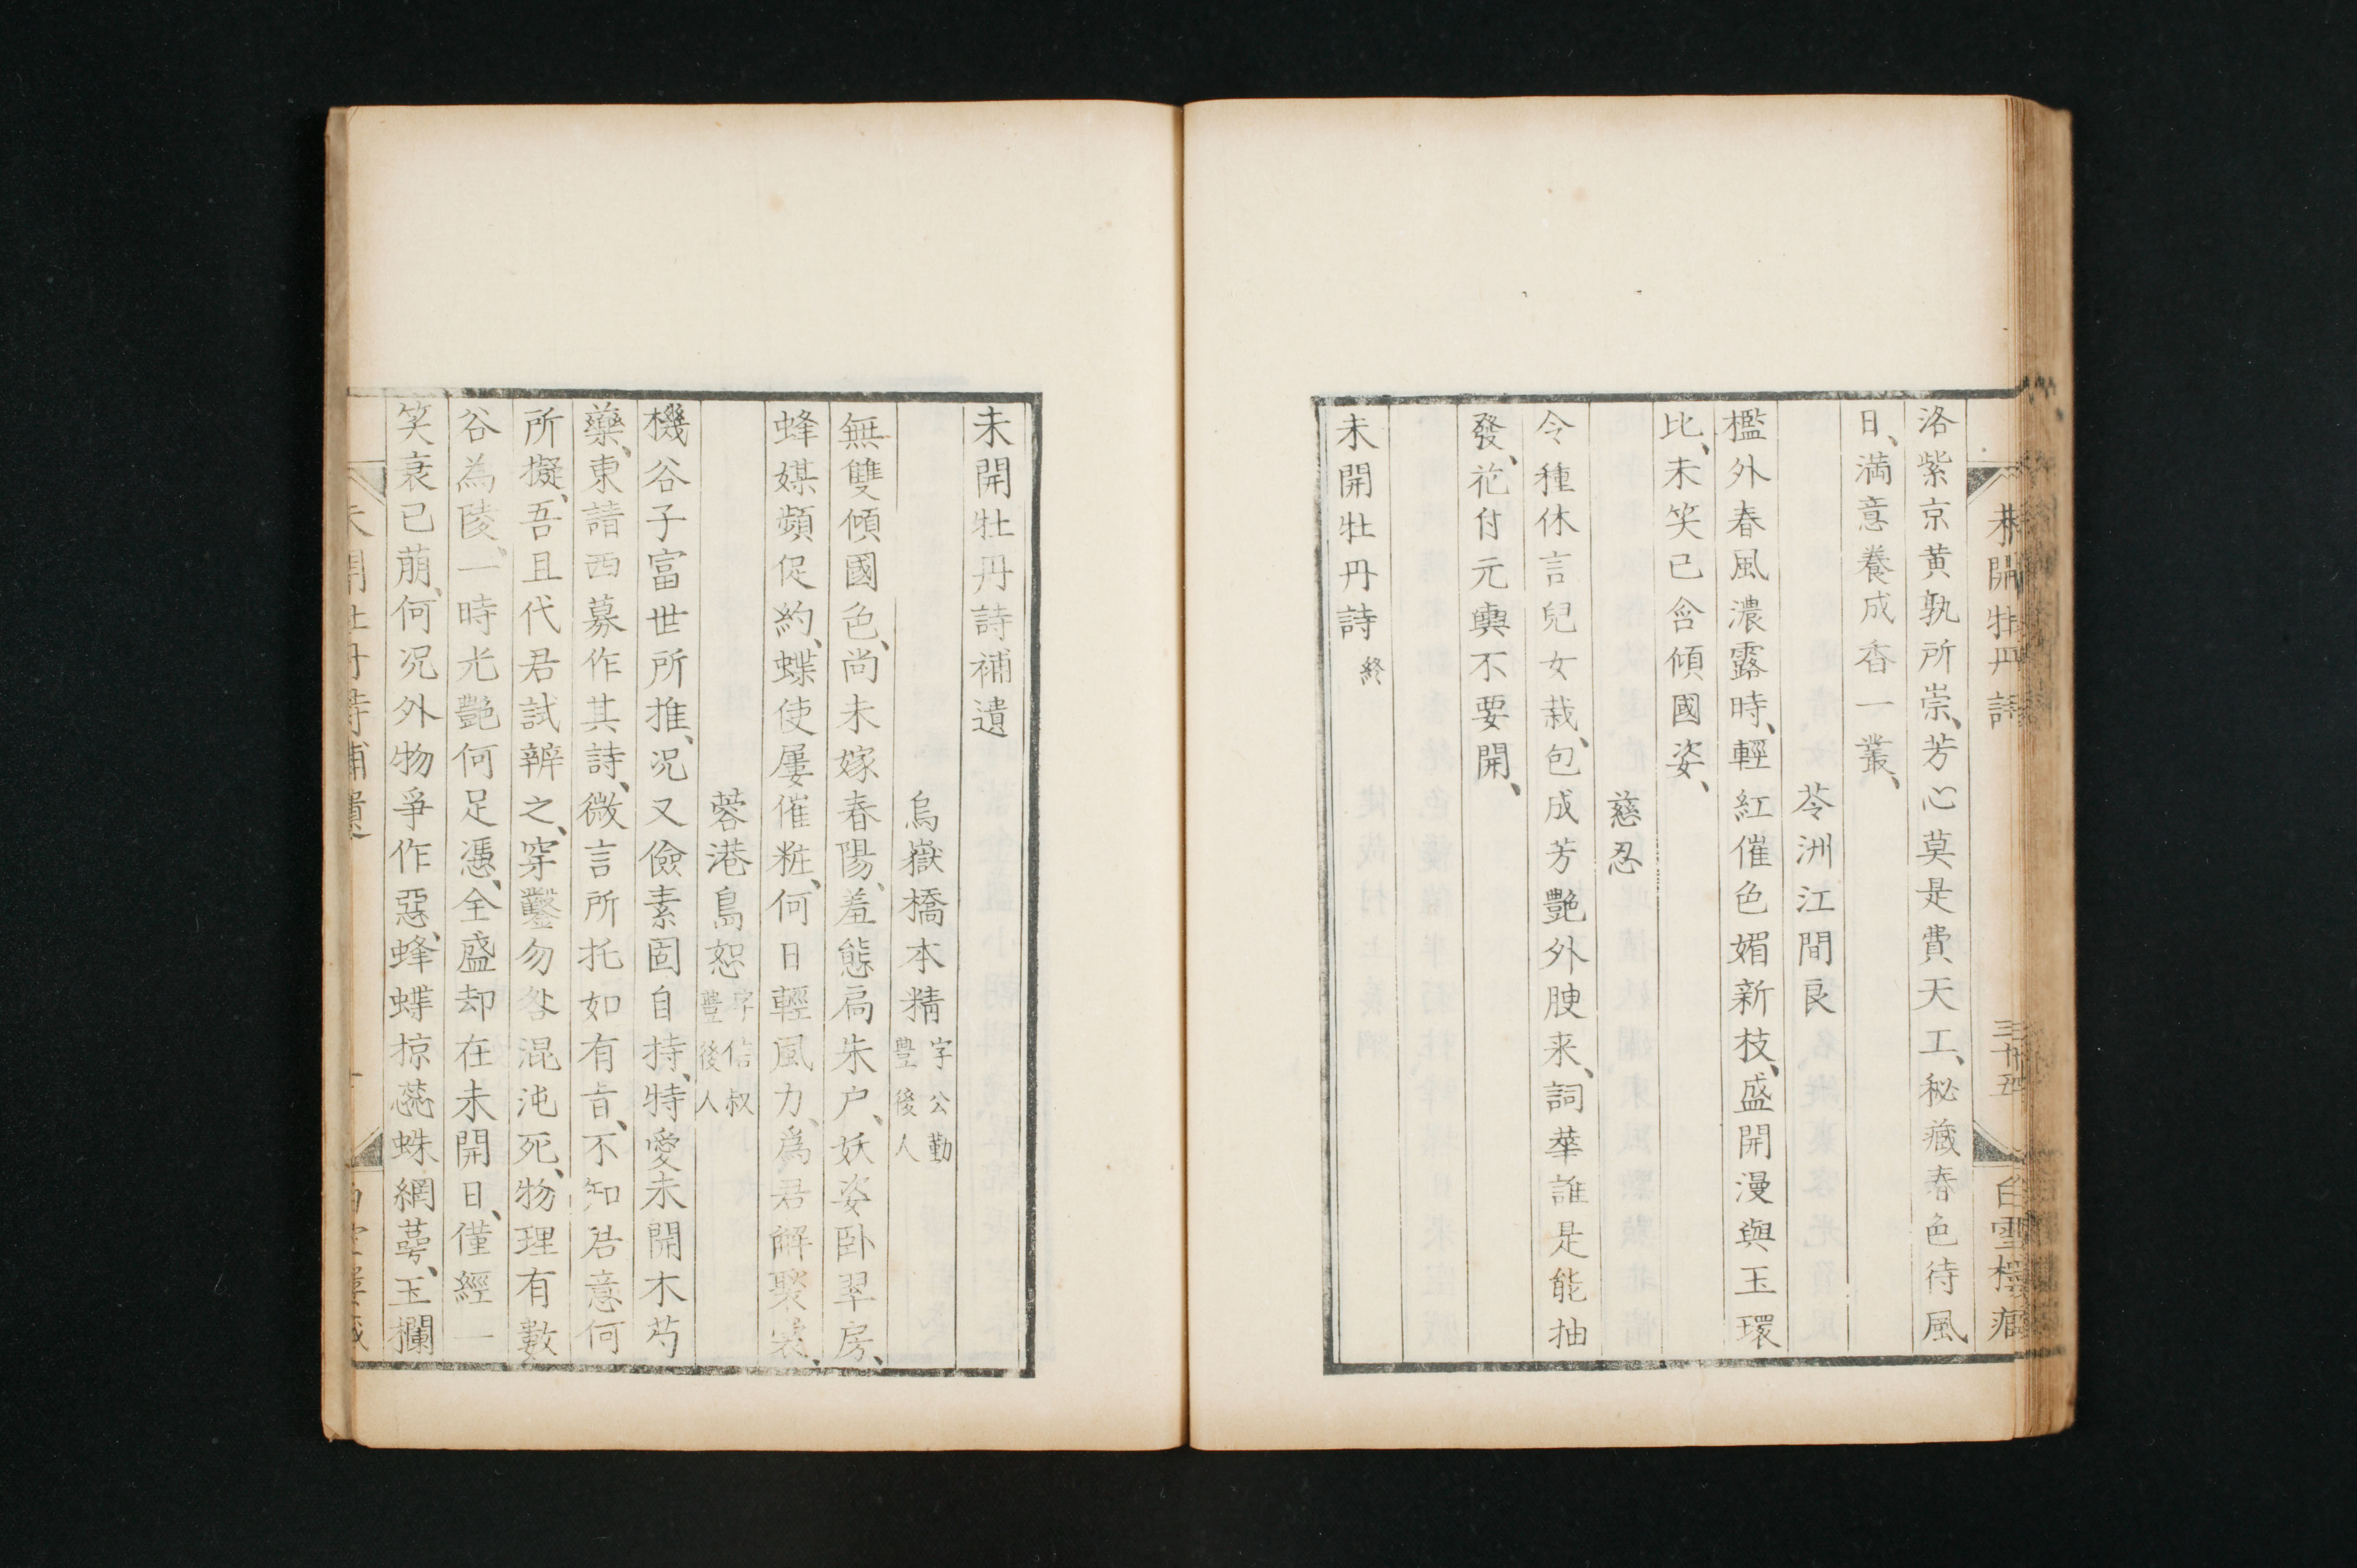 未開牡丹詩
洛紫京黄孰所崇、芳心莫是費天工、秘藏春色待風
日、満意養成香一叢、
苓洲江間良
檻外春風濃露時、輕紅催色媚新枝、盛開漫與玉環
比、未笑已含傾國姿、
慈忍
令種休言兒女栽、包成芳艷外腴来、詞華誰是能抽
發、花付元輿不要開、
未開牡丹詩終
未開牡丹詩補遺
烏嶽橋本精字公勤豊後人
無雙傾國色、尚未嫁春陽、羞態扃朱户、妖姿卧翠房、
蜂媒頻促約、蝶使屢催粧、何日輕風力、爲君解褧裳、
蓉港島恕字信叔豊後人
機谷子富世所推、况又儉素固自持、特愛未開木芍
藥、東請西募作其詩、微言所托如有旨、不知君意何
所擬、吾且代君試辨之、穿鑿勿咎混沌死、物理有數
谷為陵、一時光艷何足憑、全盛却在未開日、僅經一
笑衰已萠、何况外物爭作惡、蜂蝶掠蕊蛛網萼、玉欄
未開牡丹詩補遺